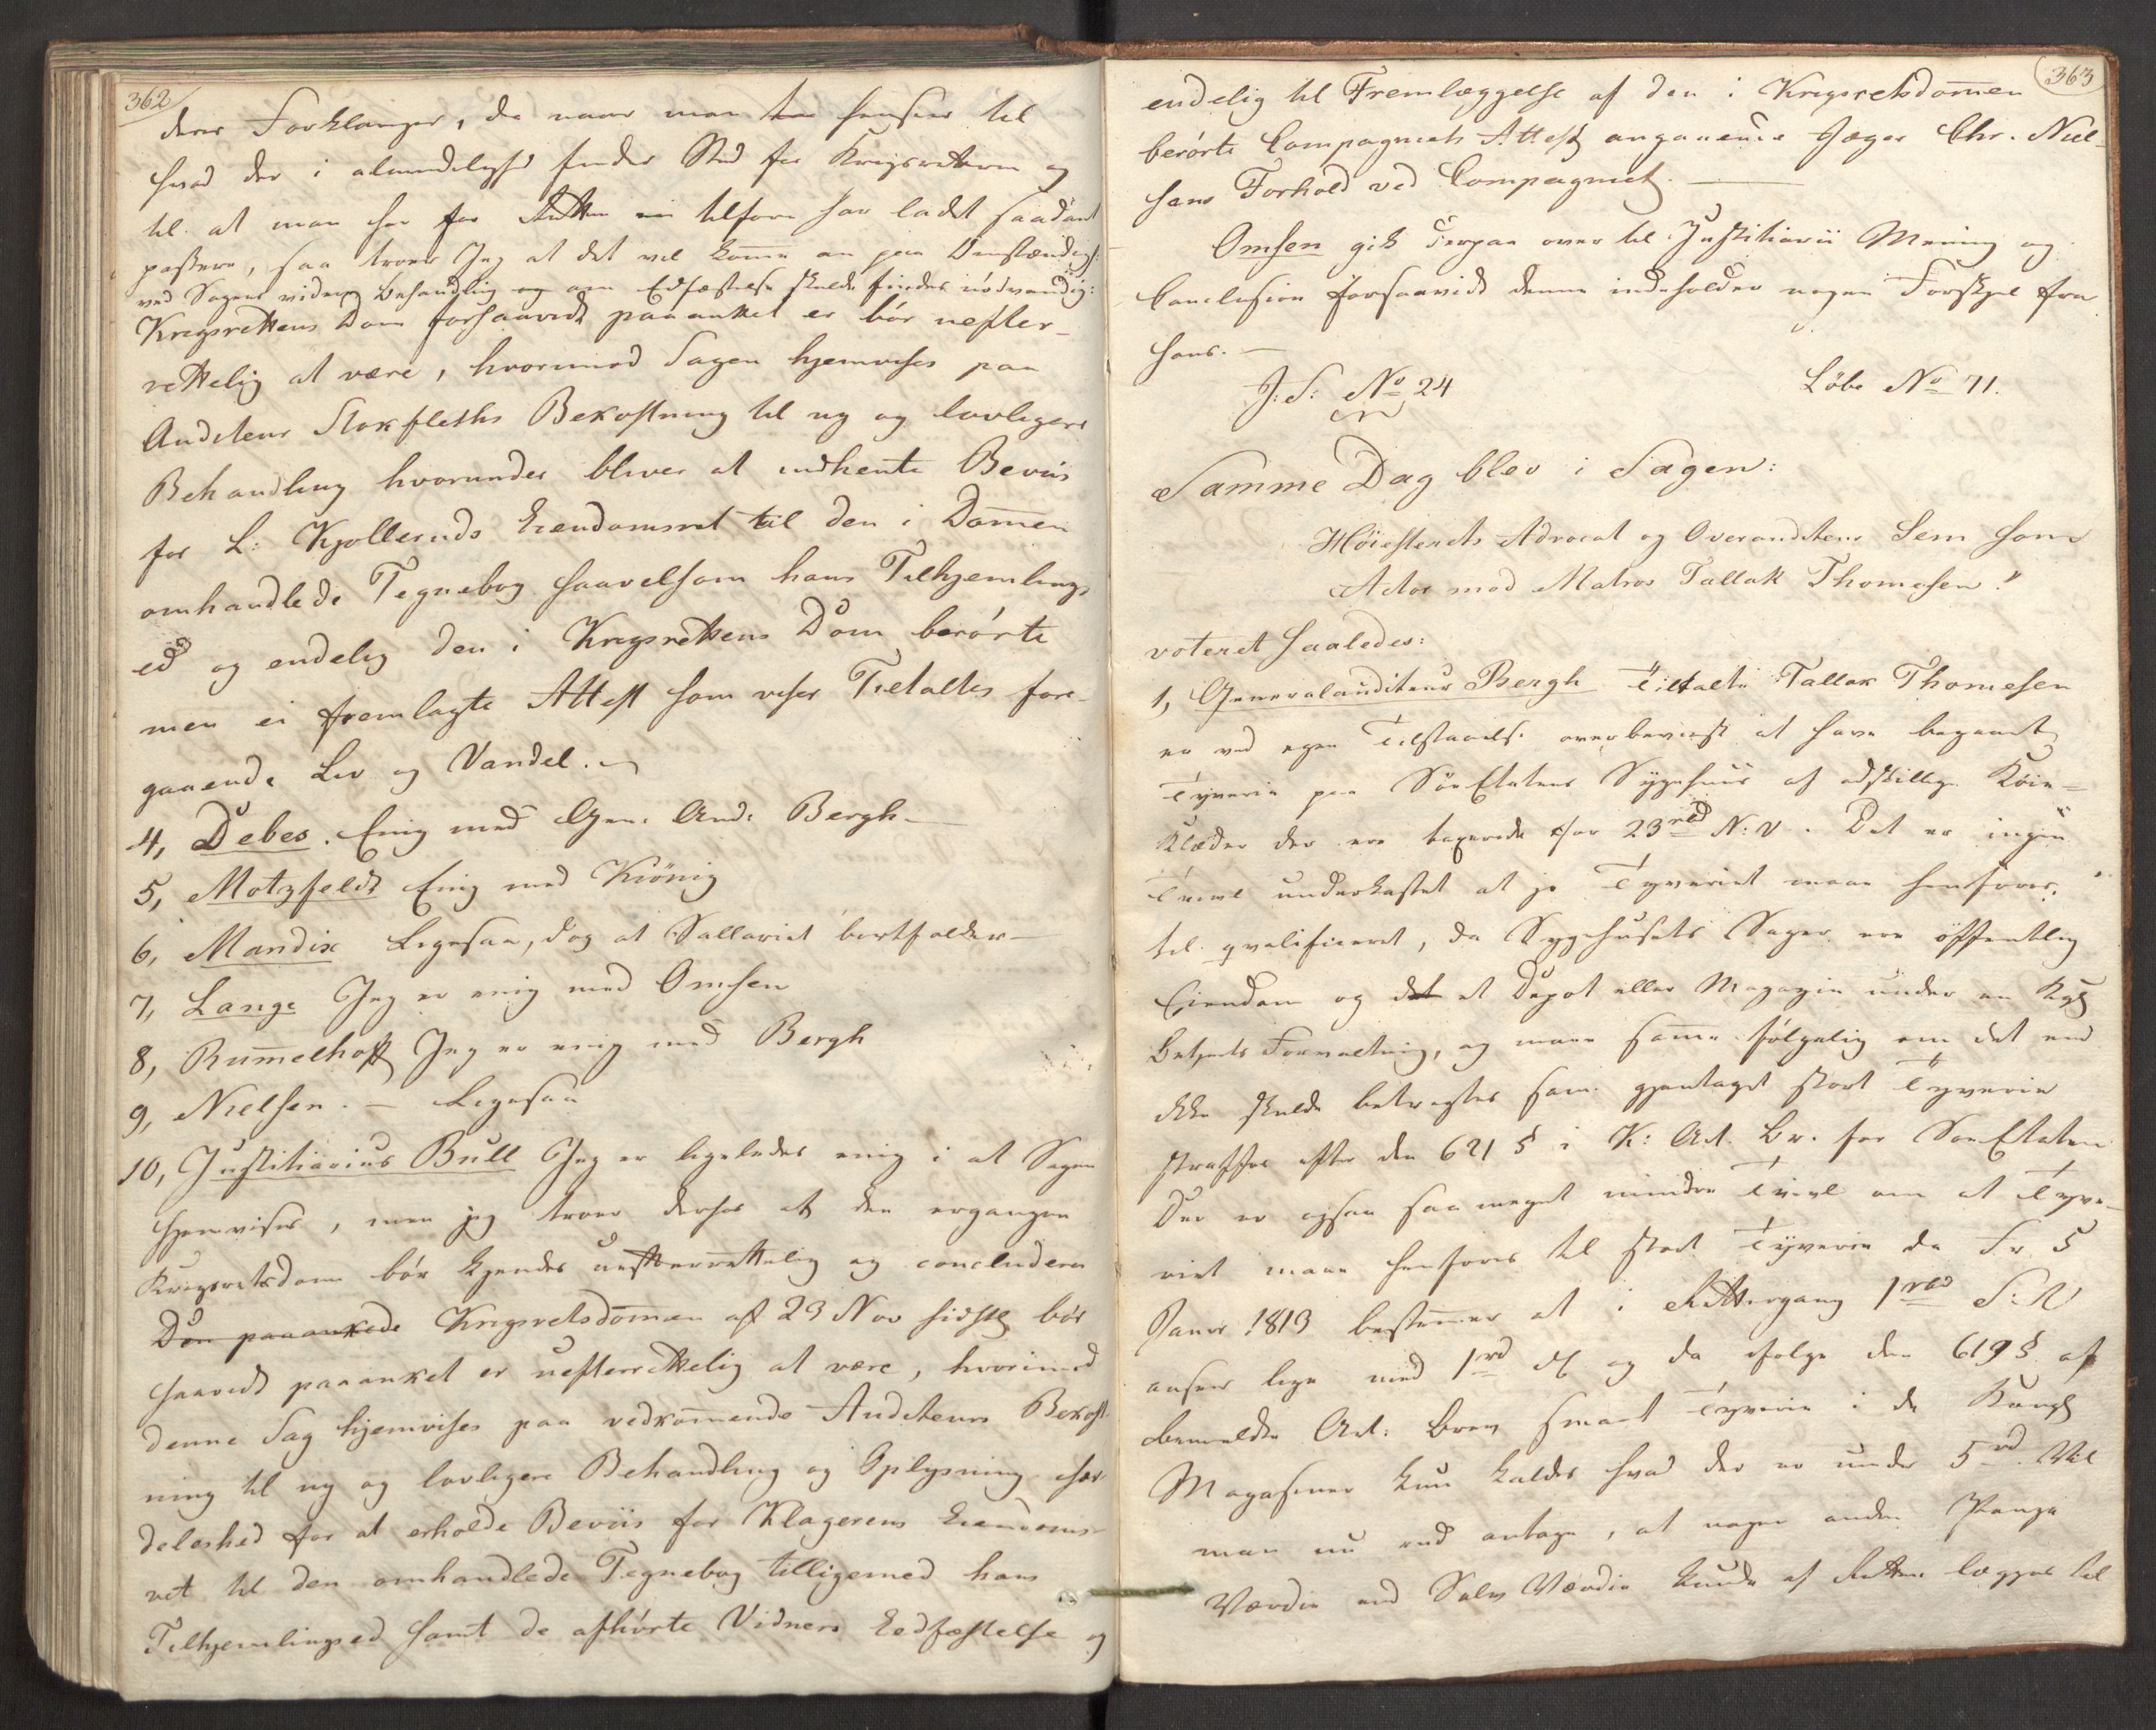 362
deres Forklaringer, da naar man hensees til
hvad der i almindelighed finder Sted for Krigsretterne og
til at man her for Retten tilforn har ladet saadant
passere, saa troer Jeg at det vil komme an paa Omstændigh:
ved Sagens videre Behandling og om Edfæstelse skulde findes nødvendig:
Krigsrettens Dom forsaavidt paaanket er bør uefter-
rettelig at være, hvorimod Sagen hjemvises paa
Auditeur Stokfleths Bekostning til ny og lovligere
Behandling hvorunder bliver at indhente Beviis
for L: Kjølleruds Eiendomsret til den i Dommen
omhandlede Tegnebog saavelsom hans Tilhjemlings
ed og endelig den i Krigsrettens Dom berørte
men ei fremlagte Attest som viser Tiltaltes fore-
gaaende Liv og Vandel.
4, Debes. Enig med Gen. Aud: Bergh
5, Motzfeldt Enig med Krönig
6, Mandix Ligesaa, dog at Sallariet bortfalder
7, Lange Jeg er enig med Omsen
8, Rummelhoff Jeg er enig med Bergh
9, Nielsen. Ligesaa
10, Justitiarius Bull Jeg er ligeledes enig i at Sagen
hjemvises, men jeg troer derhos at den ergangne
Krigsretsdom bør kjendes uefterrettelig og concluderer
Den paaankede Krigsretsdommen af 23 Nov sidste bør
saavidt paaanket er uefterrettelig at være, hvorimod
denne Sag hjemvises paa vedkommende Auditeurs Bekost-
ning til ny og lovligere Behandling og Oplysning især-
deleshed for at erholde Beviis for Klagerens Eiendoms-
ret til den omhandlede Tegnebog tilligemed hans
Tilhjemlingsed samt de afhørte Vidners Eedfæstelse og
363
endelig til Fremlæggelse af den i Krigsretsdommen
berørte Compagniets Attest angaaende Jæger Chr. Niel-
sens Forhold ved Compagniet.
Omsen gik derpaa over til Justitiarii Mening og
Conclusion forsaavidt denne indeholder nogen Forskjel fra
hans.
J: S: No 24 Löbe No 71.
Samme Dag blev i Sagen:
Høiesterets Advocat og Overauditeur Sem som
Actor mod Matros Tallak Thomesen"
voteret saaledes:
1, Generalauditeur Bergh Tiltalte Tallak Thomesen
er ved egen Tilstaaelse overbeviist at have begaaet
Tyverie paa Söe Etatens Sygehuus af adskillige Köie-
Klæder der ere taxerede for 23 rd N: V. Det er ingen
Tvivl underkastet at jo Tyveriet maae henføres
til qvalificeret, da Sygehusets Sager ere offentlig
Eiendom og det et Depot eller Magazin under en Kgl
Betjents Forvaltning, og maae samme følgelig om det end
ikke skulde betragtes som gjentaget stort Tyverie
straffes efter den 621 § i K: Art. Br. for Søe Etaten
Der er ogsaa saa meget mindre Tvivl om at Tyve-
riet maae henføres til stort Tyverie da Fr. 5
Janr 1813 bestemmer at i Rettergang 1 rbd S: V
ansees lige med 1 rd og da ifølge den 619 § af
bemeldte Art: Brev smaat Tyverie i de Kongl
Magasiner kun kaldes hvad der er under 5 rd. Vil
man nu end antage, at nogen anden Penge
Værdie end Sølv Værdie kunde af Retten lægges til